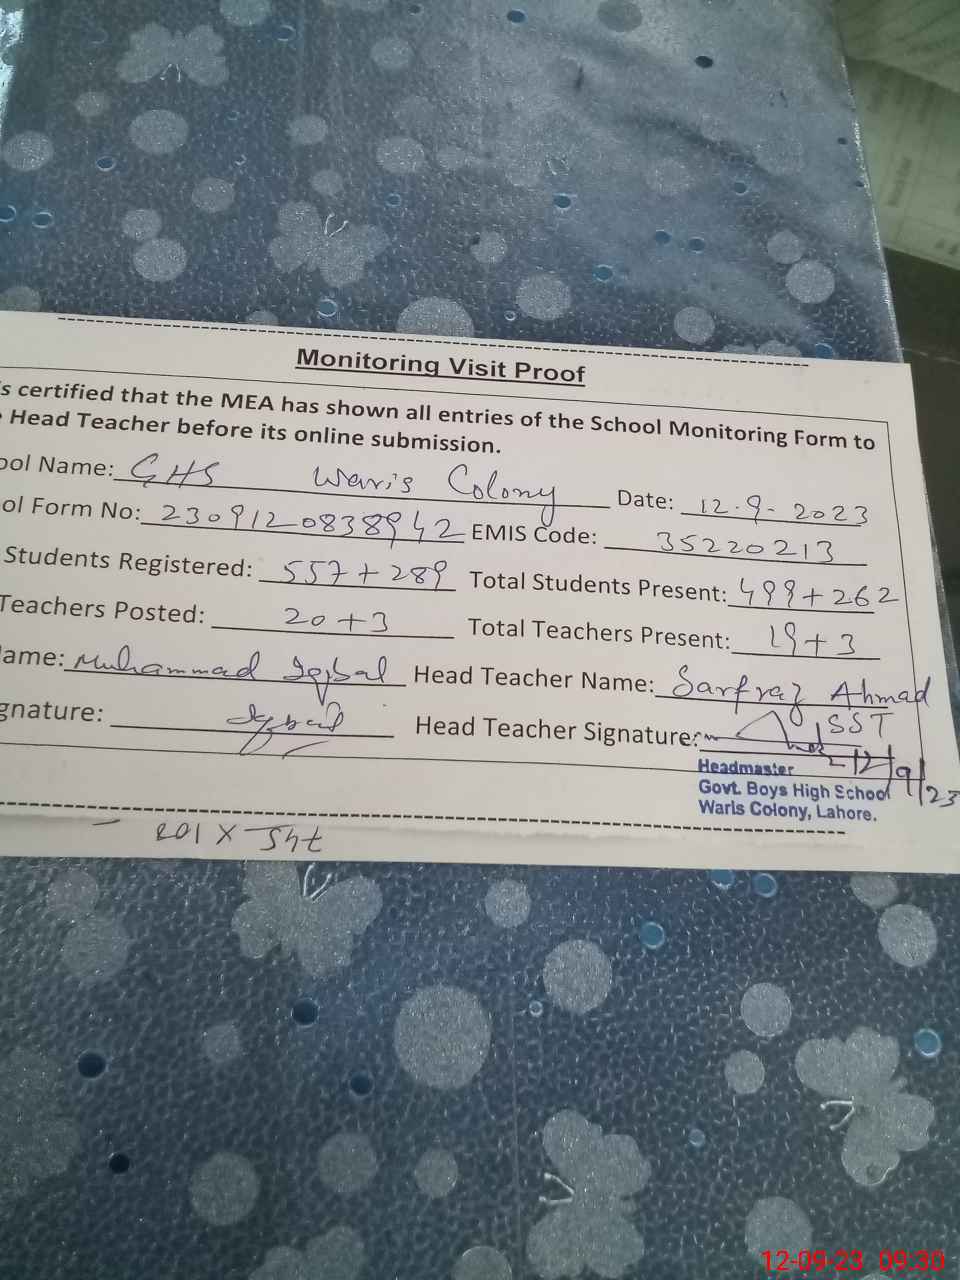 Monitoring Visit Proof
s certified that the MEA has shown all entries of the School Monitoring Form to
Head Teacher before its online submission.
ool Name: GHS Waris Colony Date: 12.9-2023
ol Form No: 2309120838942 EMIS Code: 35220213
Students Registered: 557+289 Total Students Present: 499+262
Teachers Posted: 20+3 Total Teachers Present: 19+3
ame: Muhammad Iqbal Head Teacher Name: Sarfraz Ahmad
gnature: Iqbal Head Teacher Signature: SST
12/9/23
Headmaster
Govt. Boys High School
Waris Colony, Lahore.
12-09-23 09:30